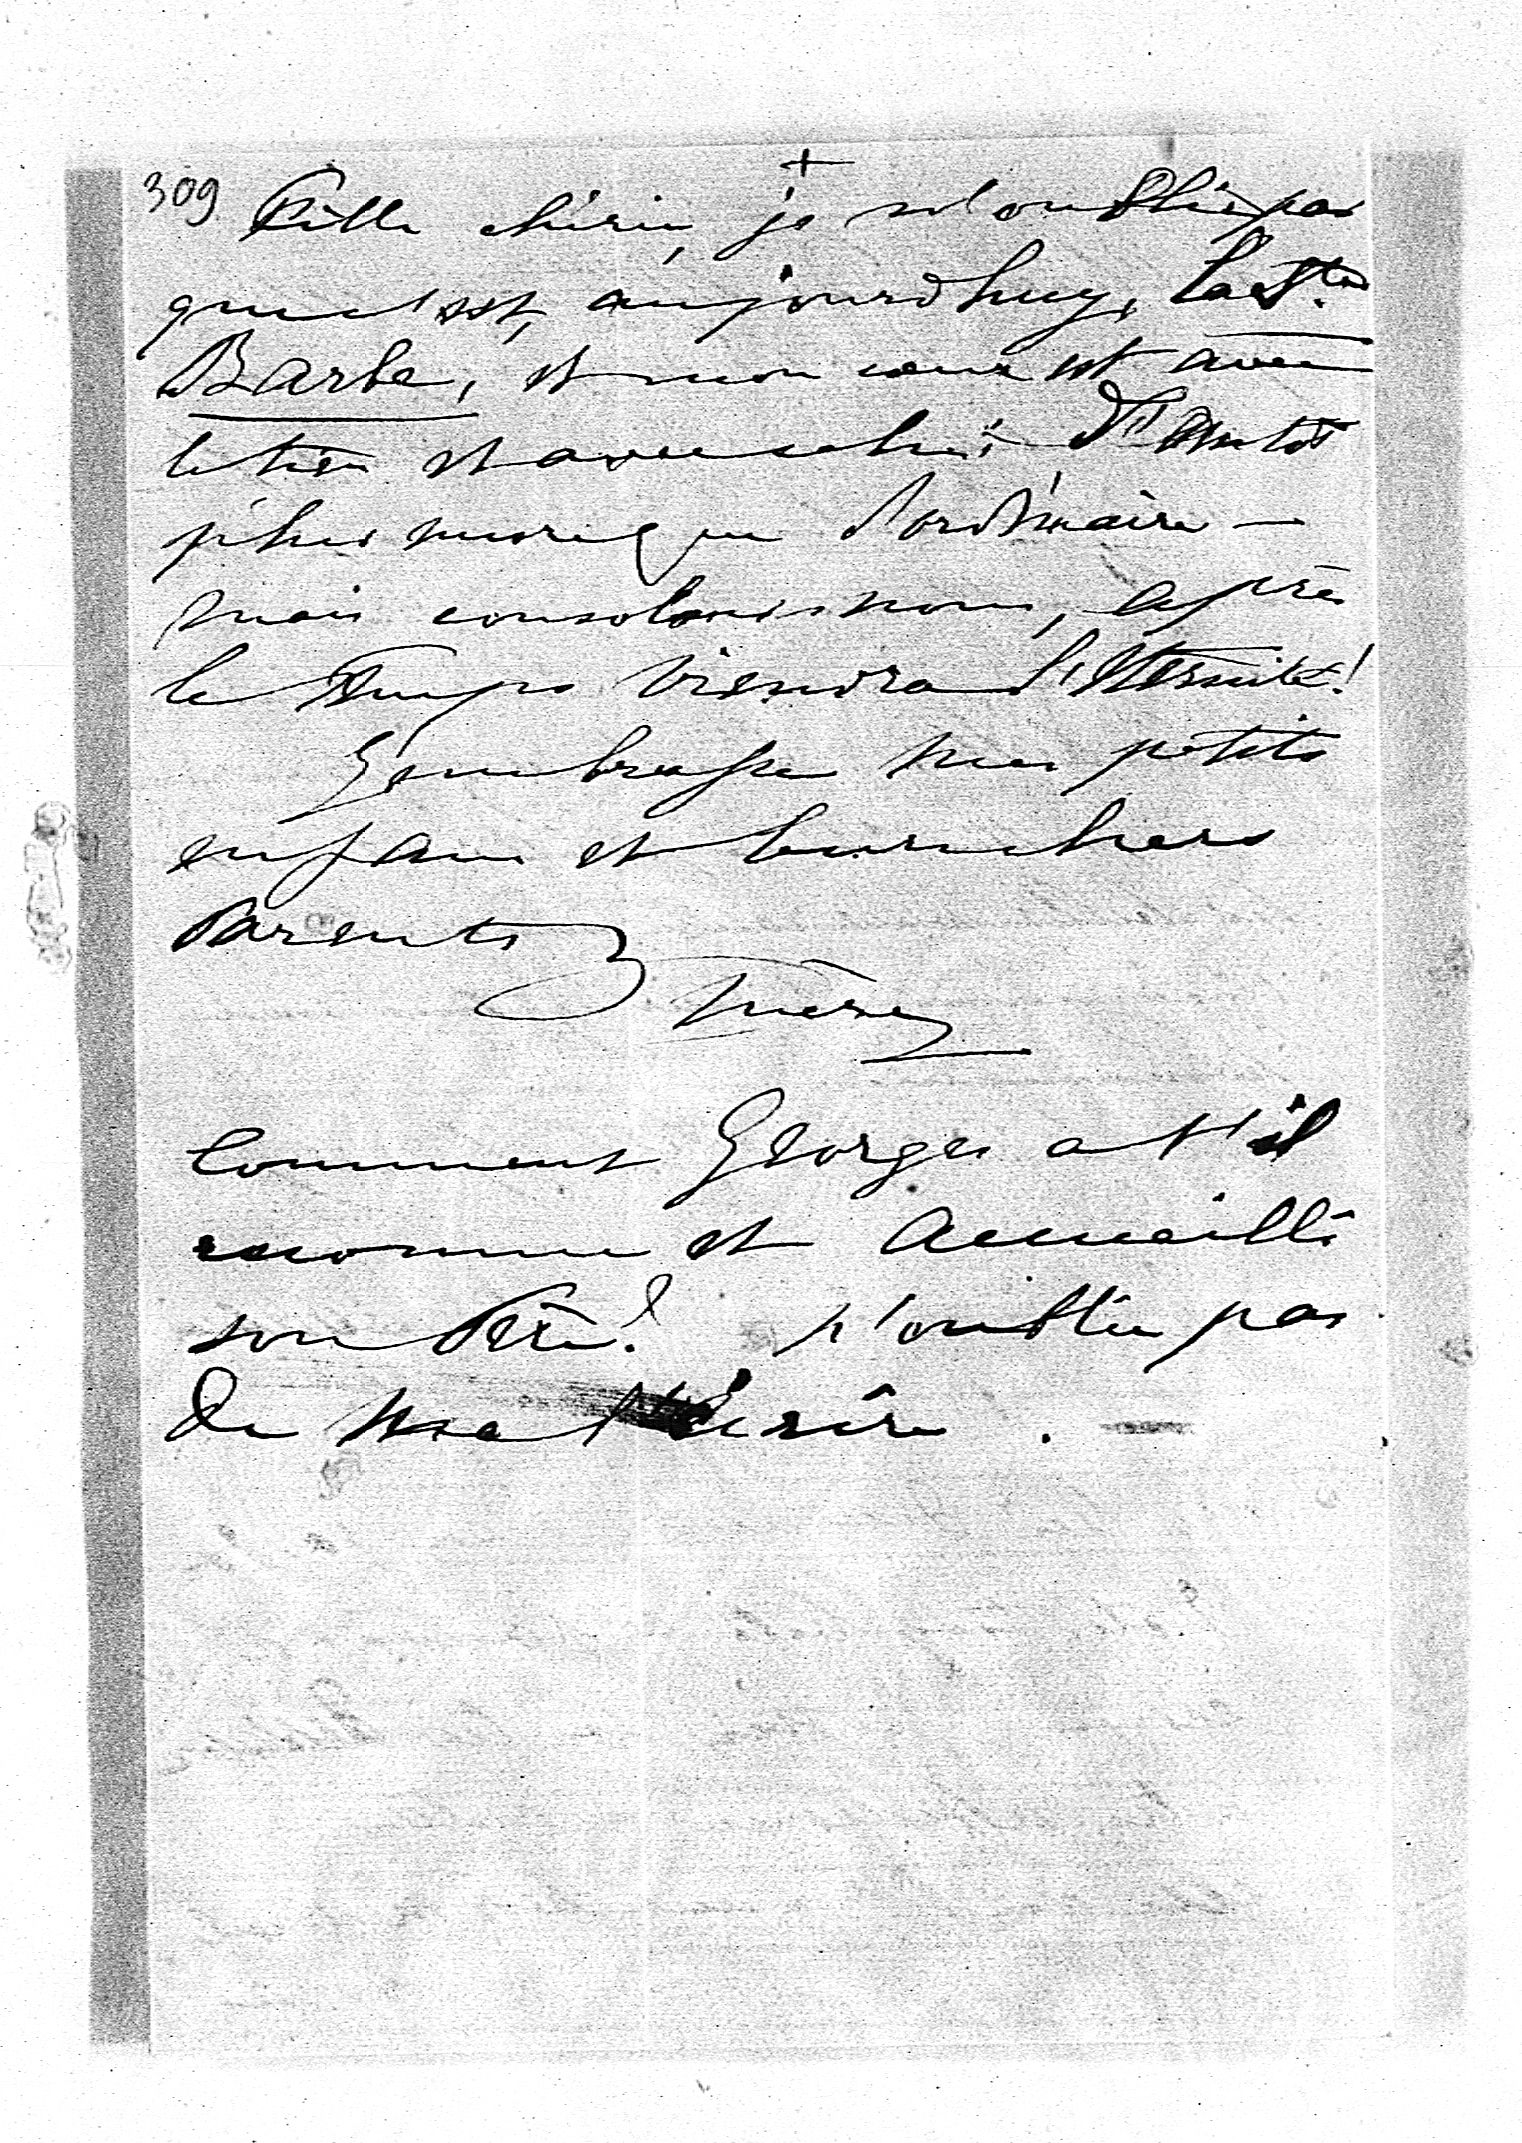 309
+
Fille chérie, je n'oublie pas
que c'est, aujourd'huy, la Ste
Barbe, et mon cœur est avec
le tien et avec celui
plus encore que d'ordinaire —
mais consolons nous, après
le temps viendra l'Eternité!
J'embrasse mes petits
enfans et leurs chers
Parents
Mère
Comment Georges a t'il
reconnu et accueilli
son Père? n'oublie pas
de me l'écrire.